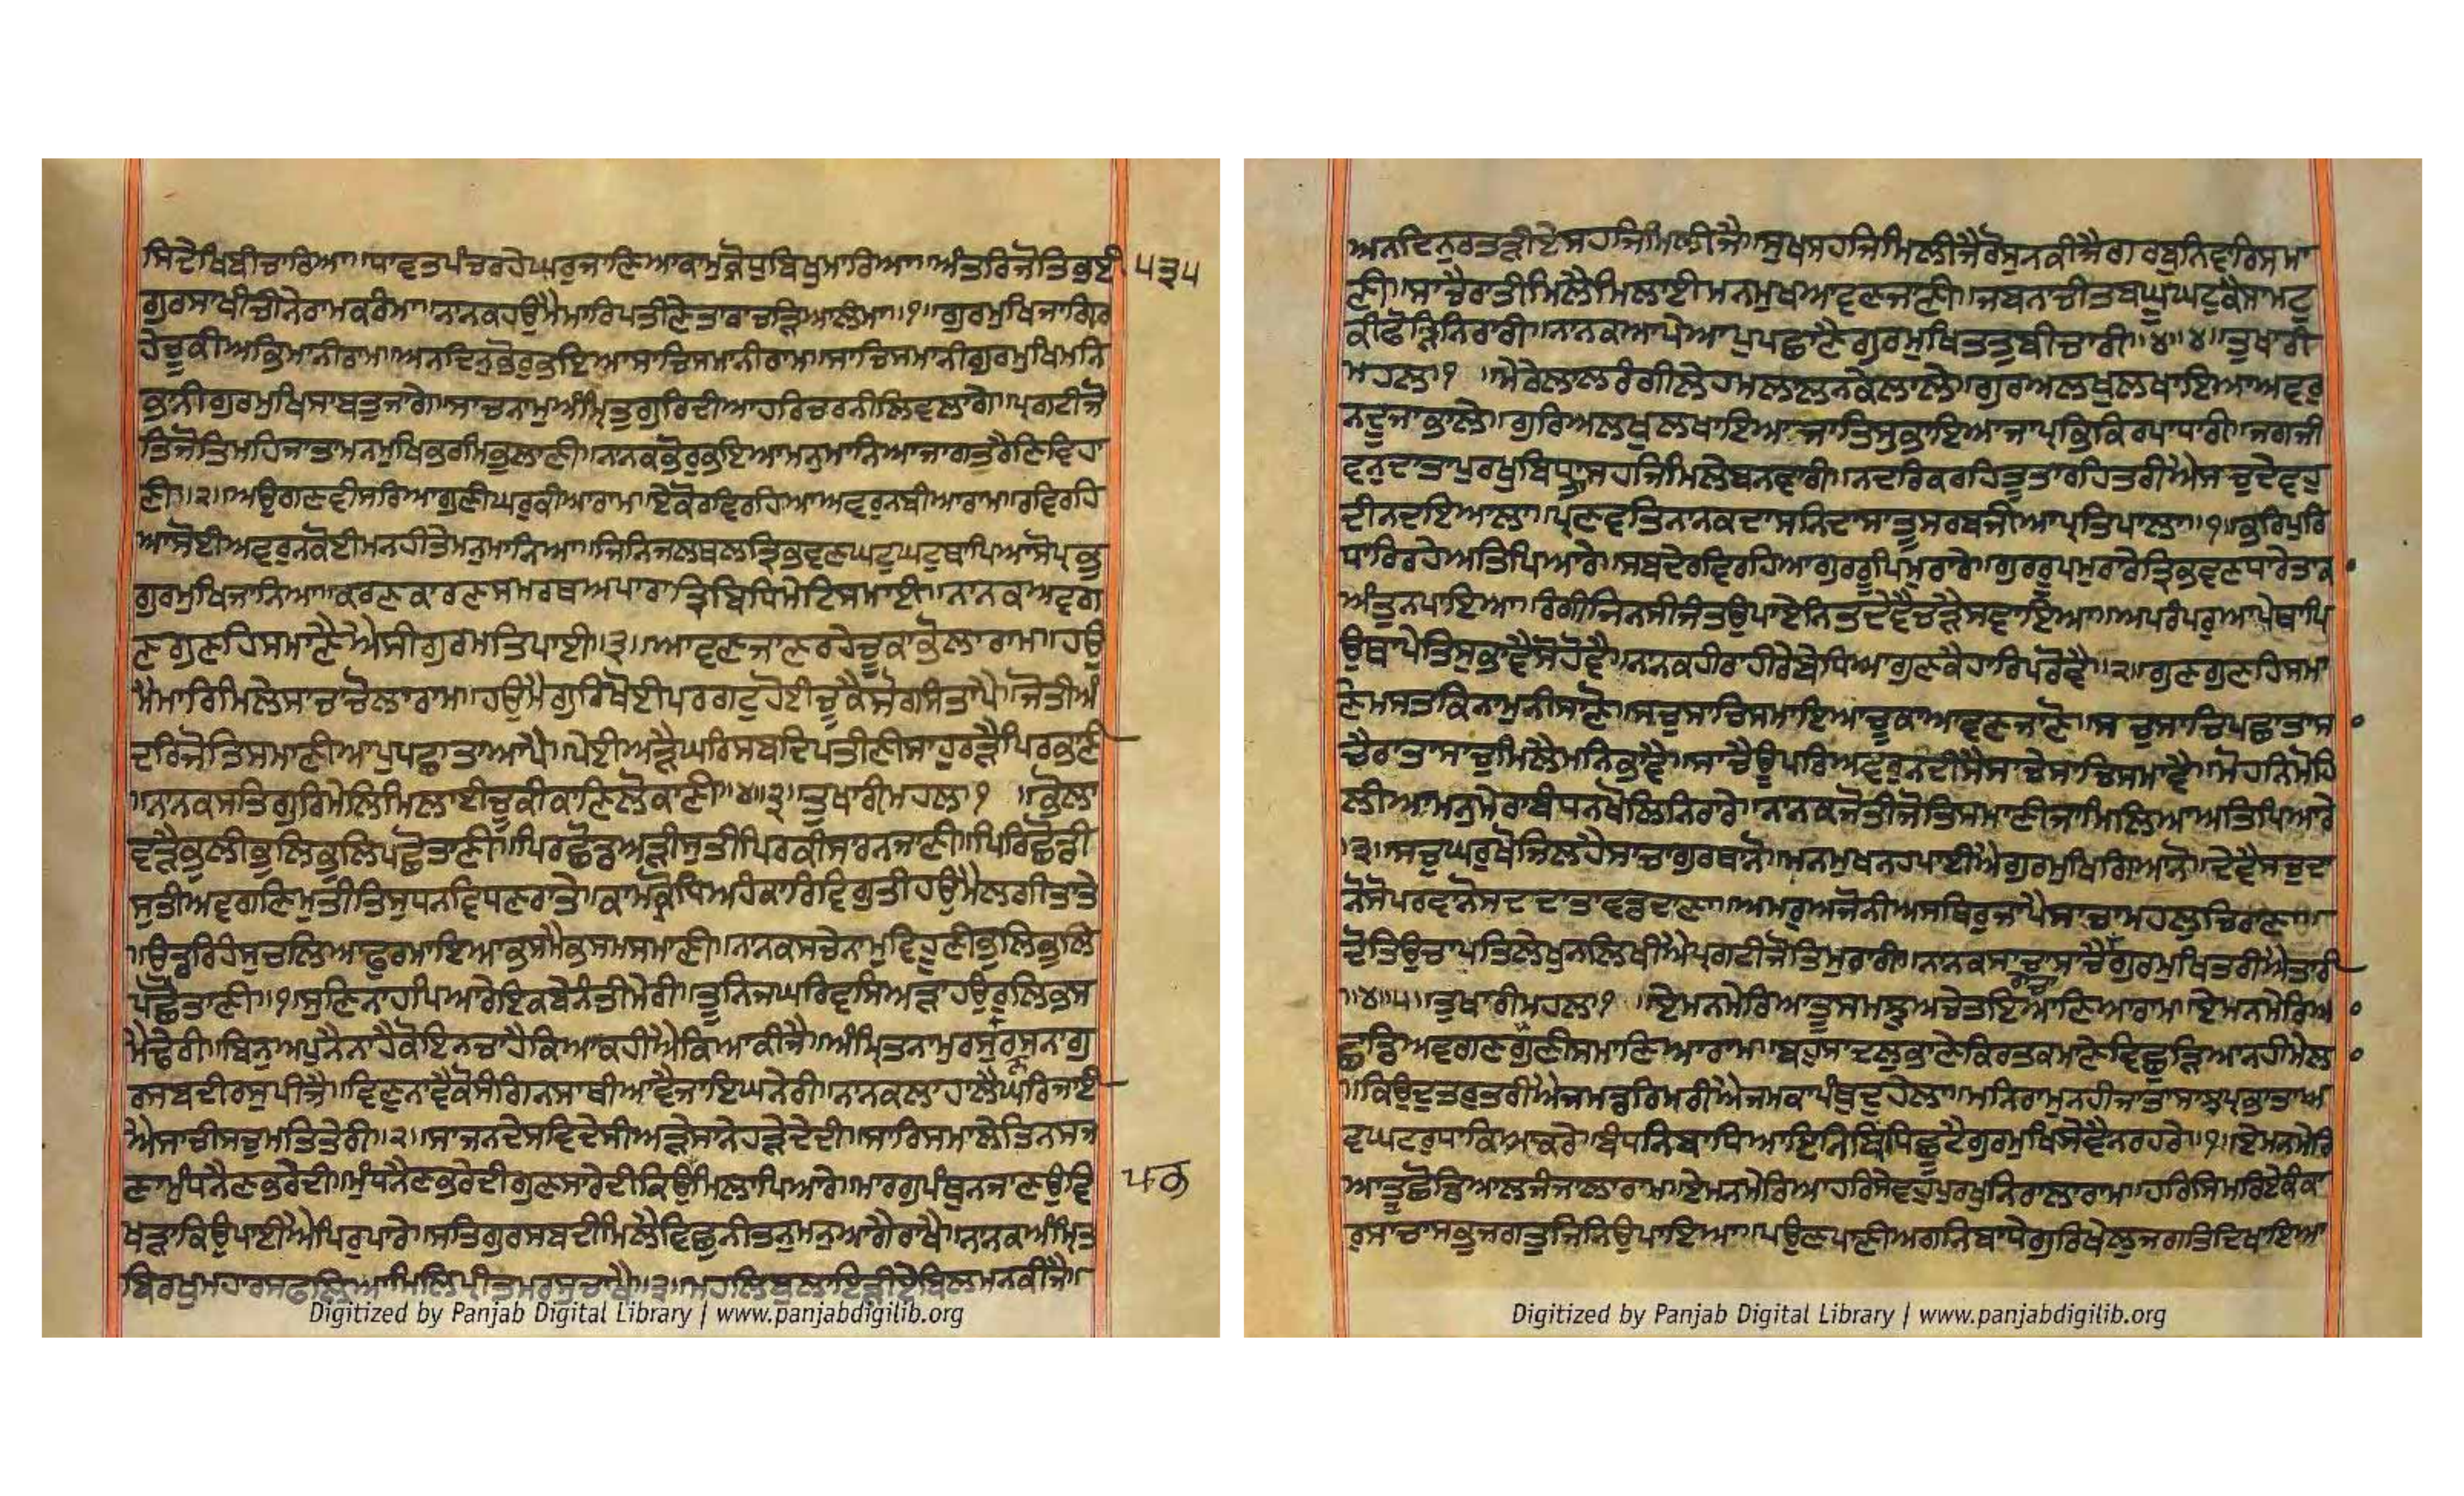 ਸਿਦੇਖਿਬੀਚਾਰਿਆ॥ਧਾਵਤਪੰਚਰਹੇਘਰੁਜਾਣਿਆਕਾਮੁਕ੍ਰੋਧੁਬਿਖੁਮਾਰਿਆ॥ਅੰਤਰਿਜੋਤਿਭਈ
੫੩੫
ਗੁਰਸਾਖੀਚੀਨੇਰਾਮਕਰੰਮਾ॥ਨਾਨਕਹਉਮੈਮਾਰਿਪਤੀਣੇਤਾਰਾਚੜਿਆਲੰਮਾ॥੧॥ਗੁਰਮੁਖਿਜਾਗਿਰ
ਹੇਚੂਕੀਅਭਿਮਾਨੀਰਾਮ॥ਅਨਦਿਨੁਭੋਰੁਭਇਆਸਾਚਿਸਮਾਨੀਰਾਮ॥ਸਾਚਿਸਮਾਨੀਗੁਰਮੁਖਿਮਨਿ
ਭਾਨੀਗੁਰਮੁਖਿਸਾਬਤੁਜਾਗੇ॥ਸਾਚਨਾਮੁਅੰਮ੍ਰਿਤੁਗੁਰਿਦੀਆਹਰਿਚਰਨੀਲਿਵਲਾਗੇ॥ਪ੍ਰਗਟੀਜੋ
ਤਿਜੋਤਿਮਹਿਜਾਤਾਮਨਮੁਖਿਭਰਮਿਭੁਲਾਣੀ॥ਨਾਨਕਭੋਰੁਭਇਆਮਨੁਮਾਨਿਆਜਾਗਤਰੈਣਿਵਿਹਾ
ਣੀ॥੨॥ਅਉਗਣਵੀਸਰਿਆਗੁਣੀਘਰੁਕੀਆਰਾਮ॥ਏਕੋਰਵਿਰਹਿਆਅਵਰੁਨਬੀਆਰਾਮ॥ਰਵਿਰਹਿ
ਆਸੋਈਅਵਰੁਨਕੋਈਮਨਹੀਤੇਮਨੁਮਾਨਿਆ॥ਜਿਨਿਜਲਥਲਤ੍ਰਿਭਵਣਘਟੁਘਟੁਥਾਪਿਆਸੋਪ੍ਰਭੁ
ਗੁਰਮੁਖਿਜਾਨਿਆ॥ਕਰਣਕਾਰਣਸਮਰਥਅਪਾਰਾਤ੍ਰਿਬਿਧਿਮੇਟਿਸਮਾਈ॥ਨਾਨਕਅਵਗ
ਣਗੁਣਹਿਸਮਾਣੈਐਸੀਗੁਰਮਤਿਪਾਈ॥੩॥ਆਵਣਜਾਣਰਹੇਚੂਕਾਭੋਲਾਰਾਮ॥ਹਉ
ਮੈਮਾਰਿਮਿਲੇਸਾਚਚੋਲਾਰਾਮ॥ਹਉਮੈਗੁਰਿਖੋਈਪਰਗਟੁਹੋਈਚੂਕੈਸੋਗਸੰਤਾਪੈ॥ਜੋਤੀਅੰ
ਦਰਿਜੋਤਿਸਮਾਣੀਆਪੁਪਛਾਤਾਆਪੈ॥ਪੇਈਅੜੈਘਰਿਸਬਦਿਪਤੀਣੀਸਾਹੁਰੜੈਪਿਰਭਾਣੀ
॥ਨਾਨਕਸਤਿਗੁਰਿਮੇਲਿਮਿਲਾਈਚੂਕੀਕਾਣਿਲੋਕਾਣੀ॥੪॥੩॥ਤੁਖਾਰੀਮਹਲਾ੧ ॥ਭੋਲਾ
ਵੜੈਭੁਲੀਭੁਲਿਭੁਲਿਪਛੋਤਾਣੀ॥ਪਿਰਛੋਡਿਅੜੀਸੁਤੀਪਿਰਕੀਸਾਰਨਜਾਣੀ॥ਪਿਰਿਛੋਡੀ
ਸੁਤੀਅਵਗਣਿਮੁਤੀਤਿਸੁਧਨਵਿਧਣਰਾਤੇ॥ਕਾਮਕ੍ਰੋਧਿਅਹੰਕਾਰਿਵਿਗੁਤੀਹਉਮੈਲਗੀਤਾਤੇ
॥ਉਡਰਿਹੰਸੁਚਲਿਆਫੁਰਮਾਇਆਭਸਮੈਭਸਮਸਮਾਣੀ॥ਨਾਨਕਸਚੇਨਾਮੁਵਿਹੂਣੀਭੁਲਿਭੁਲਿ
ਪਛੋਤਾਣੀ॥੧॥ਸੁਣਿਨਾਹਪਿਆਰੇਇਕਬੇਨੰਤੀਮੇਰੀ॥ਤੂਨਿਜਘਰਿਵਸਿਅੜਾਹਉਰੁਲਿਭਸ
ਮੈਢੇਰੀ॥ਬਿਨੁਅਪੁਨੈਨਾਹੈਕੋਇਨਚਾਹੈਕਿਆਕਹੀਐਕਿਆਕੀਜੈ॥ਅੰਮ੍ਰਿਤਨਾਮੁਰਸੁਰਸਨਾਗੁ
ਰਸਬਦੀਰਸੁਪੀਜੈ॥ਵਿਣੁਨਾਵੈਕੋਸੰਗਿਨਸਾਥੀਆਵੈਜਾਇਘਨੇਰੀ॥ਨਾਨਕਲਾਹਾਲੈਘਰਿਜਾਈ
ਐਸਾਚੀਸਚੁਮਤਿਤੇਰੀ॥੨॥ਸਾਜਨਦੇਸਵਿਦੇਸੀਅੜੇਸਾਨੇਹੜੇਦੇਦੀ॥ਸਾਰਿਸਮਾਲੇਤਿਨਸਜ
ਣਾਮੁੰਧਨੈਣਭਰੇਦੀ॥ਮੁੰਧਨੈਣਭਰੇਦੀਗੁਣਸਾਰੇਦੀਕਿਉਮਿਲਾਪਿਆਰੇ॥ਮਾਰਗੁਪੰਥੁਨਜਾਣਉਵਿ
ਖੜਾਕਿਉਪਾਈਐਪਿਰੁਪਾਰੇ॥ਸਤਿਗੁਰਸਬਦੀਮਿਲੈਵਿਛੁਨੀਤਨੁਮਨੁਆਗੈਰਾਖੈ॥ਨਾਨਕਅੰਮ੍ਰਿਤ
ਬਿਰਖੁਮਹਾਰਸਫਲਿਆਮਿਲਿਪ੍ਰੀਤਮਰਸੁਚਾਖੈ॥੩॥ਮਹਲਿਬੁਲਾਇੜੀਏਬਿਲਮਨਕੀਜੈ॥
Digitized by Panjab Digital Library | www.panjabdigilib.org
ਅਨਦਿਨੁਰਤੜੀਏਸਹਜਿਮਿਲੀਜੈ॥ਸੁਖਸਹਜਿਮਿਲੀਜੈਰੋਸੁਨਕੀਜੈਗਰਬੁਨਿਵਾਰਿਸਮਾ
ਣੀ॥ਸਾਚੈਰਾਤੀਮਿਲੈਮਿਲਾਈਮਨਮੁਖਆਵਣਜਾਣੀ॥ਜਬਨਾਚੀਤਬਘੂਘਟੁਕੈਸਾਮਟੁ
ਕੀਫੋੜਿਨਿਰਾਰੀ॥ਨਾਨਕਆਪੇਆਪੁਪਛਾਣੈਗੁਰਮੁਖਿਤਤੁਬੀਚਾਰੀ॥੪॥੪॥ਤੁਖਾਰੀ
ਮਹਲਾ੧ ॥ਮੇਰੇਲਾਲਰੰਗੀਲੇਹਮਲਾਲਨਕੇਲਾਲੇ॥ਗੁਰਅਲਖੁਲਖਾਇਆਅਵਰੁ
ਨਦੂਜਾਭਾਲੇ॥ਗੁਰਿਅਲਖੁਲਖਾਇਆਜਾਤਿਸੁਭਾਇਆਜਾਪ੍ਰਭਿਕਿਰਪਾਧਾਰੀ॥ਜਗਜੀ
ਵਨੁਦਾਤਾਪੁਰਖੁਬਿਧਾਤਾਸਹਜਿਮਿਲੇਬਨਵਾਰੀ॥ਨਦਰਿਕਰਹਿਤੂਤਾਰਹਿਤਰੀਐਸਚੁਦੇਵਹੁ
ਦੀਨਦਇਆਲਾ॥ਪ੍ਰਣਵਤਿਨਾਨਕਦਾਸਨਿਦਾਸਾਤੂਸਰਬਜੀਆਪ੍ਰਤਿਪਾਲਾ॥੧॥ਭਰਿਪੁਰਿ
ਧਾਰਿਰਹੇਅਤਿਪਿਆਰੇ॥ਸਬਦੇਰਵਿਰਹਿਆਗੁਰਰੂਪਿਮੁਰਾਰੇ॥ਗੁਰਰੂਪਮੁਰਾਰੇਤ੍ਰਿਭਵਣਧਾਰੇਤਾਕਾ
ਅੰਤੁਨਪਾਇਆ॥ਰੰਗੀਜਿਨਸੀਜੰਤਉਪਾਏਨਿਤਦੇਵੈਚੜੈਸਵਾਇਆ॥ਅਪਰੰਪਰੁਆਪੇਥਾਪਿ
ਉਥਾਪੇਤਿਸੁਭਾਵੈਸੋਹੋਵੈ॥ਨਾਨਕਹੀਰਾਹੀਰੇਬੇਧਿਆਗੁਣਕੈਹਾਰਿਪਰੋਵੈ॥੨॥ਗੁਣਗੁਣਹਿਸਮਾ
ਣੇਮਸਤਕਿਨਾਮੁਨੀਸਾਣੋ॥ਸਚੁਸਾਚਿਸਮਾਇਆਚੂਕਾਆਵਣਜਾਣੋ॥ਸਚੁਸਾਚਿਪਛਾਤਾਸਾ
ਚੈਰਾਤਾਸਾਚੁਮਿਲੈਮਨਿਭਾਵੈ॥ਸਾਚੈਊਪਰਿਅਵਰੁਨਦੀਸੈਸਾਚੇਸਾਚਿਸਮਾਵੈ॥ਮੋਹਨਿਮੋਹਿ
ਲੀਆਮਨੁਮੇਰਾਬੰਧਨਖੋਲਿਨਿਰਾਰੇ॥ਨਾਨਕਜੋਤੀਜੋਤਿਸਮਾਣੀਜਾਮਿਲਿਆਅਤਿਪਿਆਰੇ
।੩॥ਸਚੁਘਰੁਖੋਜਿਲਹੈਸਾਚਾਗੁਰਥਾਨੋ॥ਮਨਮੁਖਨਹਪਾਈਐਗੁਰਮੁਖਿਗਿਆਨੋ॥ਦੇਵੈਸਚੁਦਾ
ਨੋਸੋਪਰਵਾਨੋਸਦਦਾਤਾਵਡਦਾਣਾ॥ਅਮਰੁਅਜੋਨੀਅਸਥਿਰੁਜਾਪੈਸਾਚਾਮਹਲੁਚਿਰਾਣਾ॥
ਦੋਤਿਉਚਾਪਤਿਲੇਖੁਨਲਿਖੀਐਪ੍ਰਗਟੀਜੋਤਿਮੁਰਾਰੀ॥ਨਾਨਕਸਾਚਾਸਾਚੈਰਾਚਾਗੁਰਮੁਖਿਤਰੀਐਤਾਰੀ
॥੪॥੫॥ਤੁਖਾਰੀਮਹਲਾ੧ ॥ਏਮਨਮੇਰਿਆਤੂਸਮਝੁਅਚੇਤਇਆਣਿਆਰਾਮ॥ਏਮਨਮੇਰਿਆ
ਛਡਿਅਵਗਣਗੁਣੀਸਮਾਣਿਆਰਾਮ॥ਬਹੁਸਾਦਲੁਭਾਣੇਕਿਰਤਕਮਾਣੇਵਿਛੁੜਿਆਨਹੀਮੇਲਾ
॥ਕਿਉਦੁਤਰੁਤਰੀਐਜਮਡਰਿਮਰੀਐਜਮਕਾਪੰਥੁਦੁਹੇਲਾ॥ਮਨਿਰਾਮੁਨਹੀਜਾਤਾਸਾਝਪ੍ਰਭਾਤਾਅ
ਵਘਟਰੁਧਾਕਿਆਕਰੇ॥ਬੰਧਨਿਬਾਧਿਆਇਨਿਬਿਧਿਛੂਟੈਗੁਰਮੁਖਿਸੇਵੈਨਰਹਰੇ॥੧॥ਏਮਨਮੇਰਿ
ਆਤੂਛੋਡਿਆਲਜੰਜਾਲਾਰਾਮ॥ਏਮਨਮੇਰਿਆਹਰਿਸੇਵਹੁਪੁਰਖੁਨਿਰਾਲਾਰਾਮ॥ਹਰਿਸਿਮਰਿਏਕੰਕਾ
ਰੁਸਾਚਾਸਭੁਜਗਤੁਜਿੰਨਿਉਪਾਇਆ॥ਪਉਣਪਾਣੀਅਗਨਿਬਾਧੇਗੁਰਿਖੇਲੁਜਗਤਿਦਿਖਾਇਆ
Digitized by Panjab Digital Library | www.panjabdigilib.org